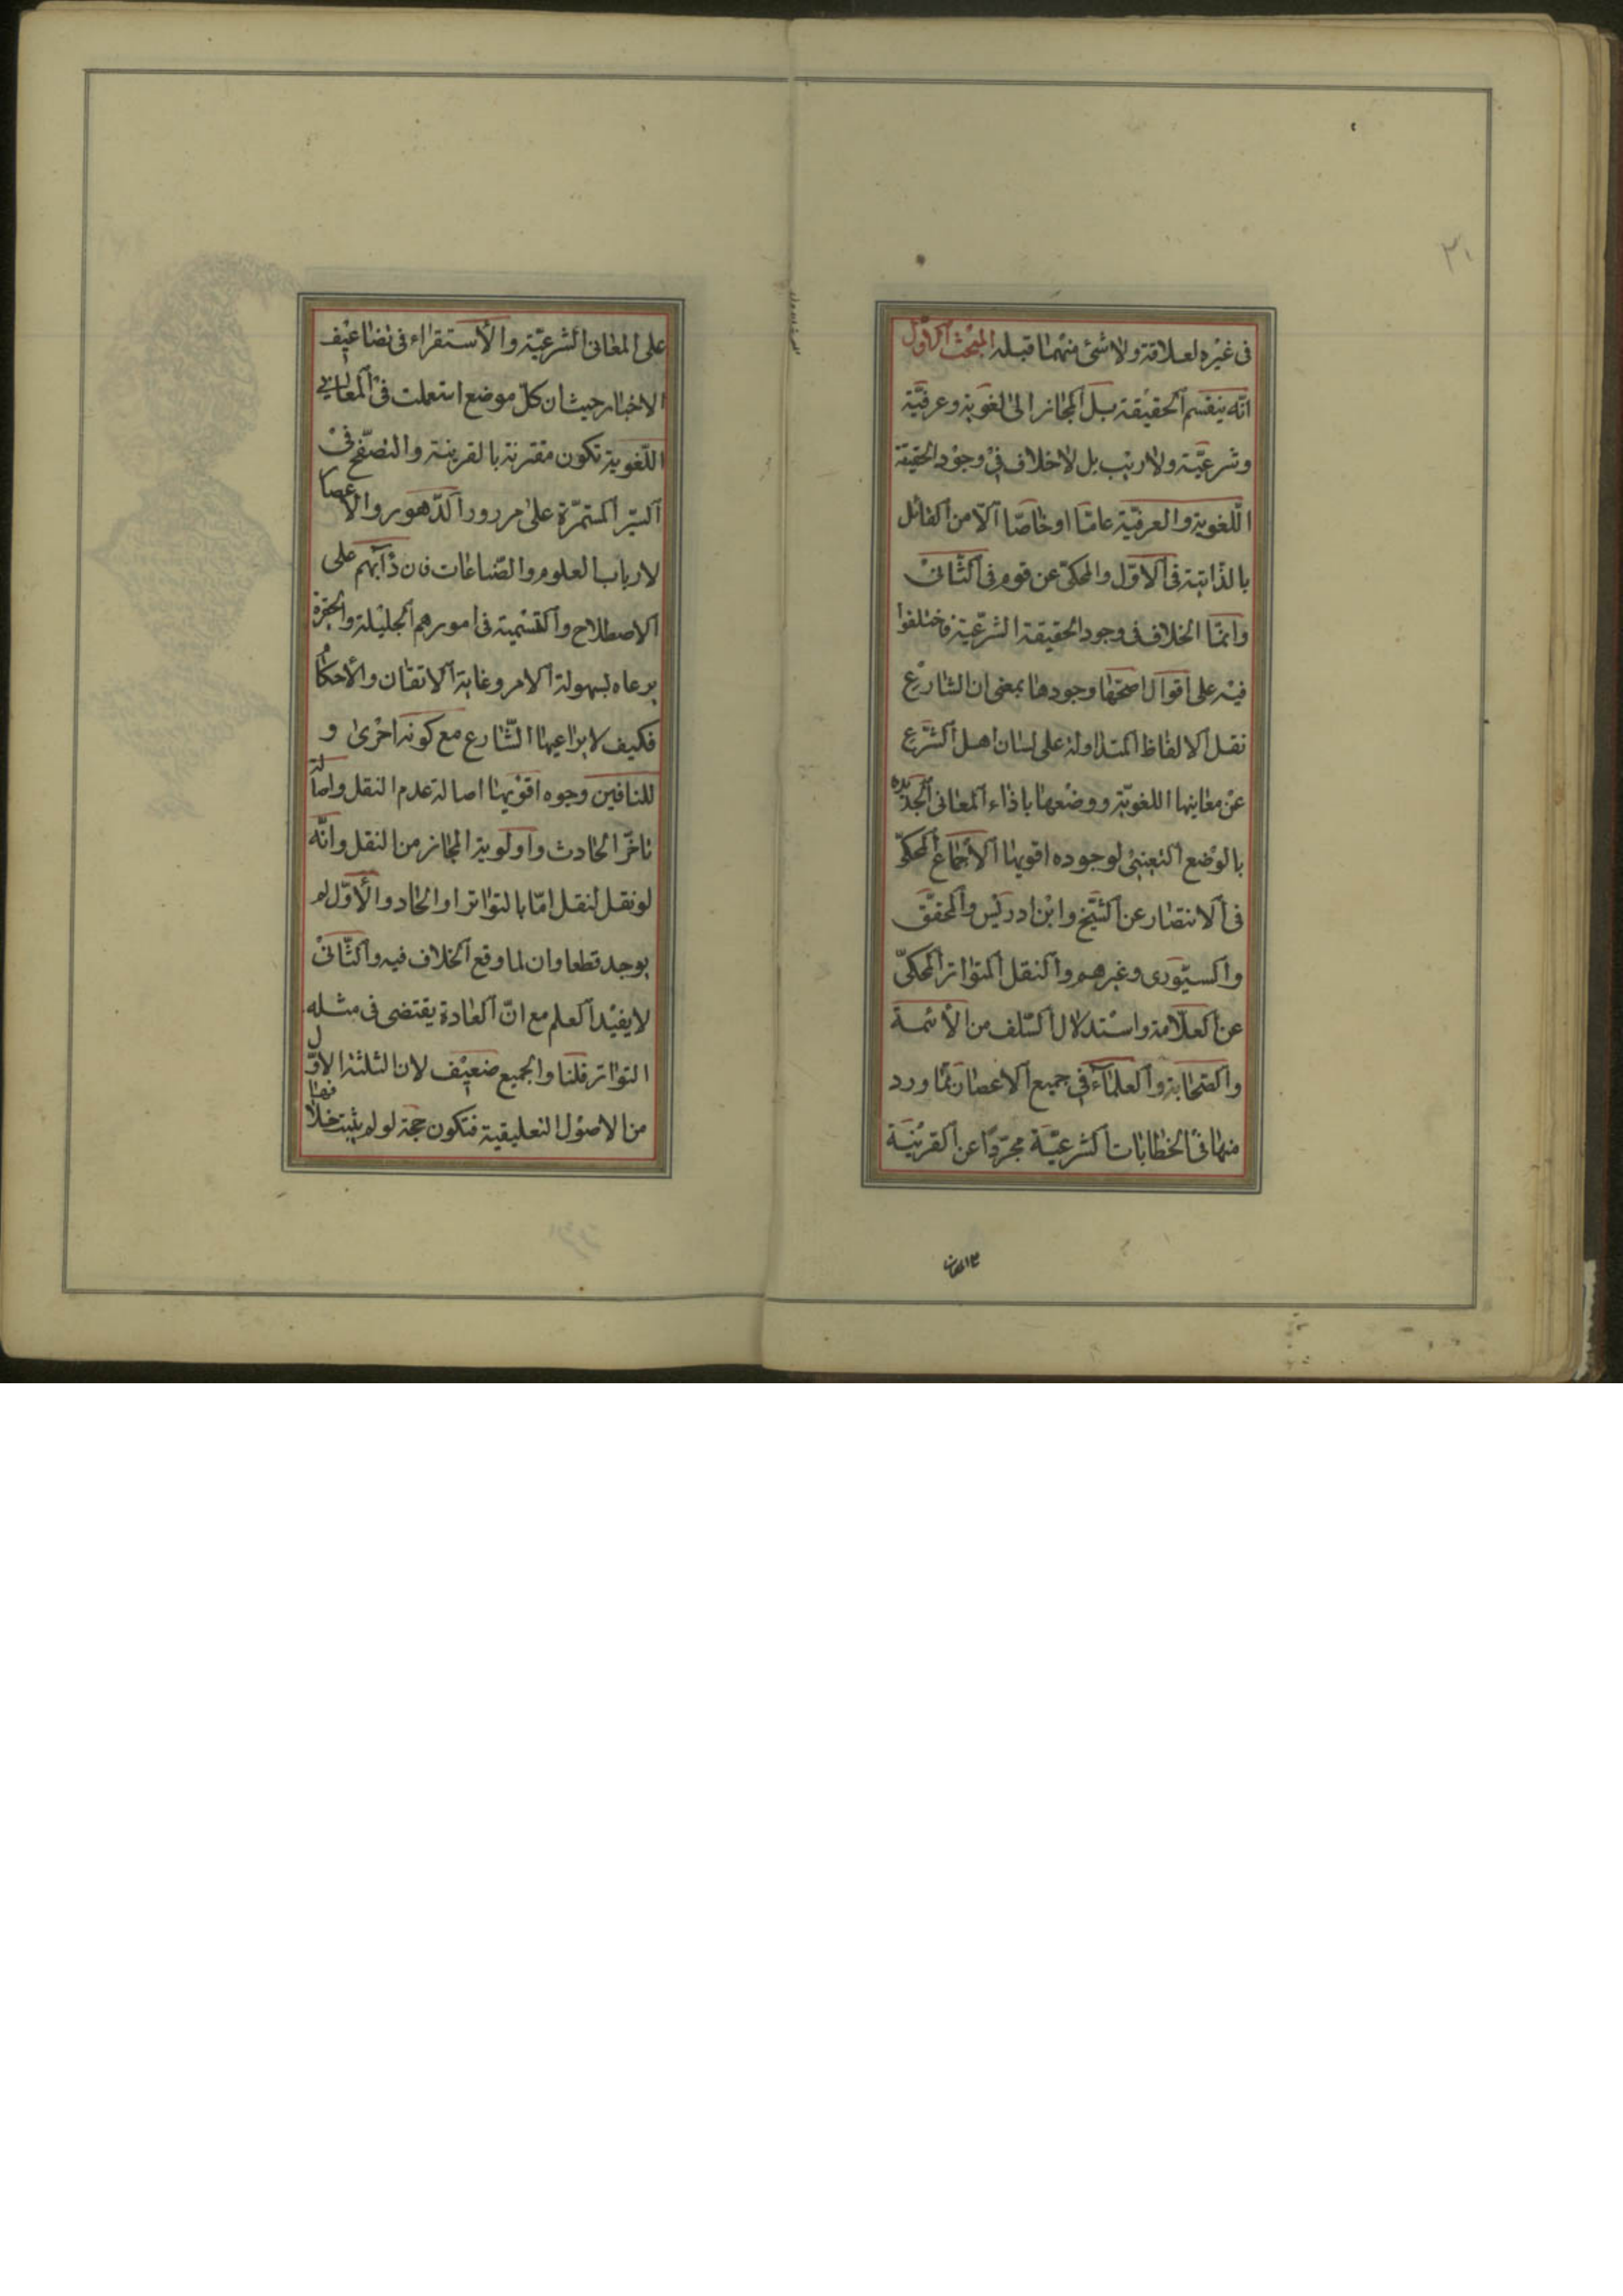 ٣٠
فى غيره لعلاقة ولا شئ منهما قبله المبحث الاول
انّه ينقسم الحقيقة بل المجاز الى لغوية وعرفيّة
وشرعيّة ولا ريب بل لا خلاف فى وجود الحقيقة
اللّغوية والعرفيّة عامّا او خاصّا الّا من القائل
بالذاتية فى الاوّل والمحكىّ عن قوم فى الثّانى
وانمّا الخلاف فى وجود الحقيقة الشرعيّة فاختلفوا
فيه على اقوال اصحّها وجودها بمعنى ان الشارع
نقل الالفاظ المتداولة على لسان اهل الشّرع
عن معانيها اللغويّة ووضعها باذاء المعانى الجديدة
بالوضع التعينىّ لوجوده اقويها الاجماع المحكىّ
فى الانتصار عن الشّيخ وابن ادريس والمحقّق
والسيّورى وغيرهم والنقل المتواتر المحكىّ
عن العلّامة واستدلال السّلف من الأئمة
والصّحابة والعلماء فى جميع الاعصار بما ورد
منها فى الخطابات الشرعيّة مجرّدا عن القرينة
على المعانى الشرعيّة والأستقراء فى تضاعيف
الاخبار حيث ان كلّ موضع استعملت فى المعانى
اللّغوية تكون مقترنة بالقرينة والتصّفح فى
السّير المستمرّة على مرور الدّهور والاعصار
لارباب العلوم والصّناعات فان دأبهم على
الاصطلاح والتسمية فى امورهم الجليلة والحقيرة
يرعاه لسهولة الامر وغاية الاتقان والأحكام
فكيف لا يراعيها الشّارع مع كونه احرى و
للنافين وجوه اقويها اصالة عدم النقل واصالة
تاخّر الحادث واولوية المجاز من النقل وانّه
لو نقل لنقل امّا بالتواتر او الحاد والأوّل لم
يوجد قطعا وان لما وقع الخلاف فيه والثّانى
لا يفيد العلم مع انّ العادة يقتضى فى مثله
التواتر قلنا والجميع ضعيف لان الثلثة الاوّل
من الاصول التعليقية فتكون حجة لو لم يثبت خلافها